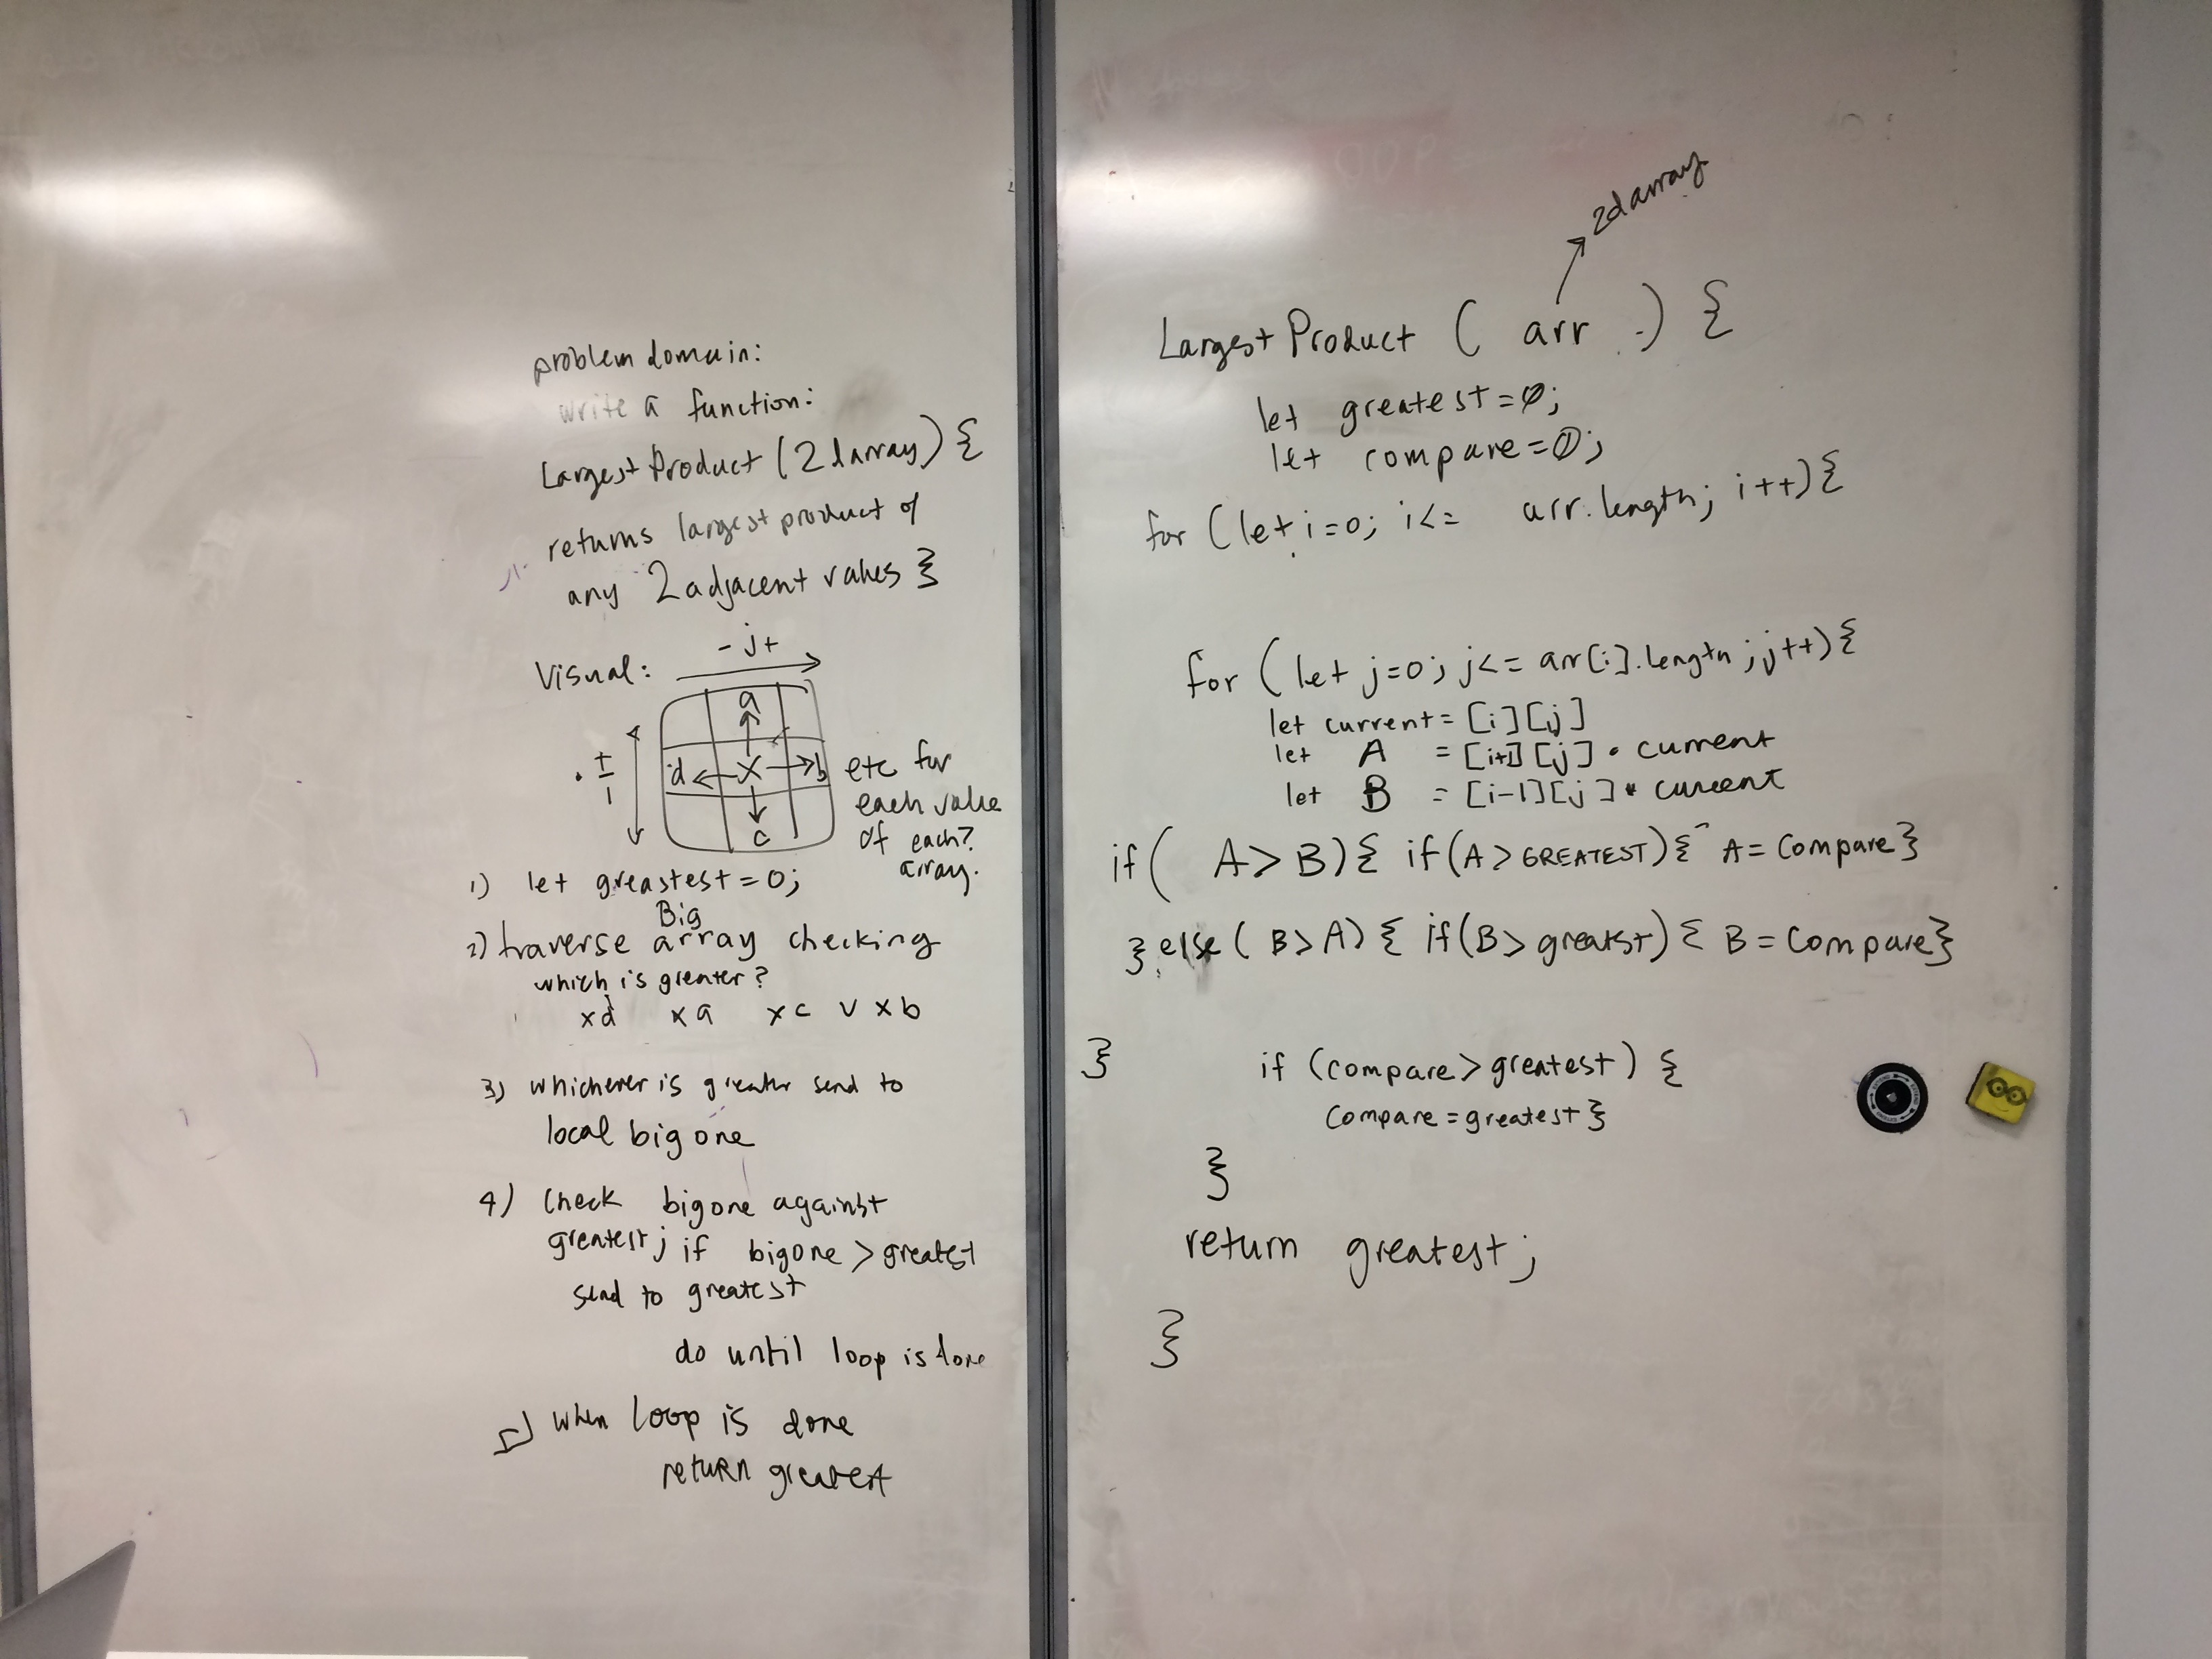 problem domain:
write a function:
Largest Product (2darray) {
returns largest product of
any 2 adjacent values }
Visual:
- j +
a
d x b
c
+
-
i
etc for
each value
of each?
array.
1) let greastest = 0;
Big
2) traverse array checking
which is greater?
xd xa xc v xb
3) whichever is greater send to
local big one
4) check bigone against
greatest; if bigone > greatest
send to greatest
do until loop is done
5) when loop is done
return greatest
2d array
Largest Product ( arr ) {
let greatest = 0;
let compare = 0;
for (let i=0; i<= arr.length; i++) {
for (let j=0; j<= arr[i].length; j++) {
let current = [i][j]
let A = [i+1][j] * current
let B = [i-1][j] * current
if ( A > B) { if (A > GREATEST) { A = Compare }
} else ( B > A) { if (B > greatst) { B = Compare }
} if (compare > greatest) {
Compare = greatest }
}
return greatest;
}